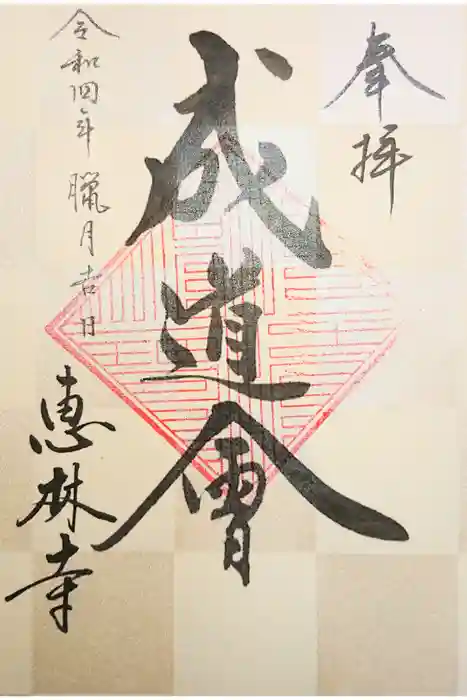 奉拝
成道會
令和四年臘月吉日
恵林寺